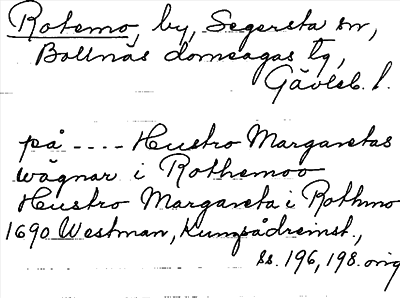 Rotemo, by, Segersta sn,
Bollnäs domsagas tg,
Gävleb. l.
på .... Hustro Margaretas
wägnar i Rothemoo
Hustro Margareta i Rothmo
1690 Westman, Kumpådremst.,
ss. 196, 198. orig